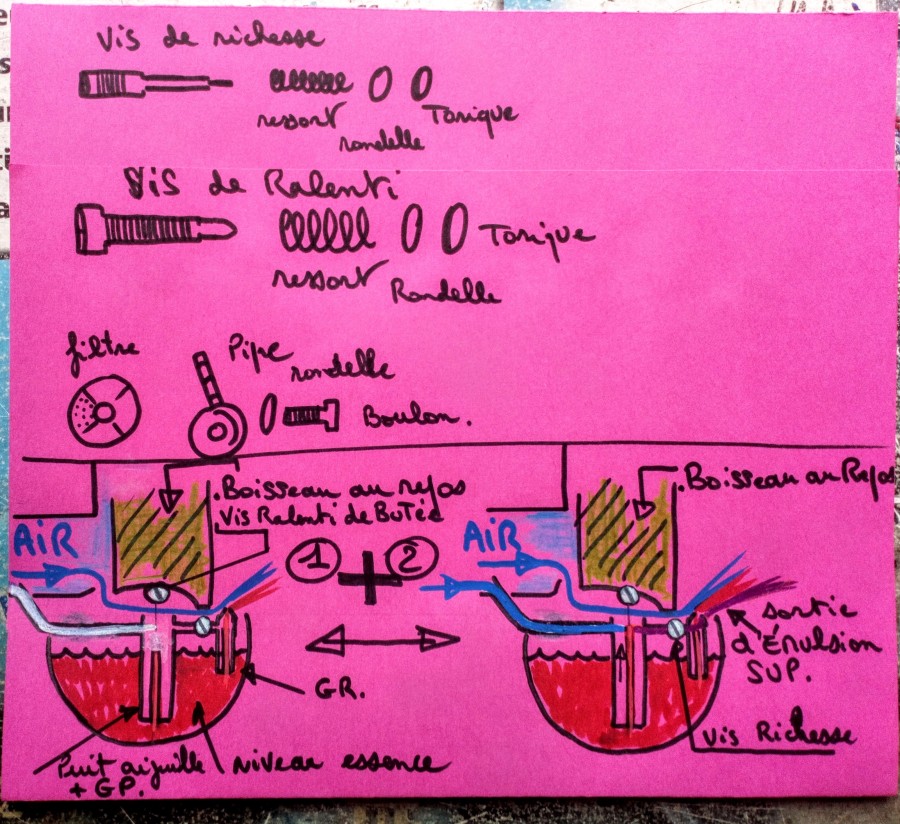 Vis de richesse
ressort
rondelle
Torique
Vis de Ralenti
ressort
Rondelle
Torique
filtre
Pipe
rondelle
Boulon.
.Boisseau au repos
Vis Ralenti de Butée
AiR
1 + 2
GR.
Puit aiguille
+ GP.
niveau essence
.Boisseau au Repos
AiR
sortie
d'Émulsion
SUP.
Vis Richesse